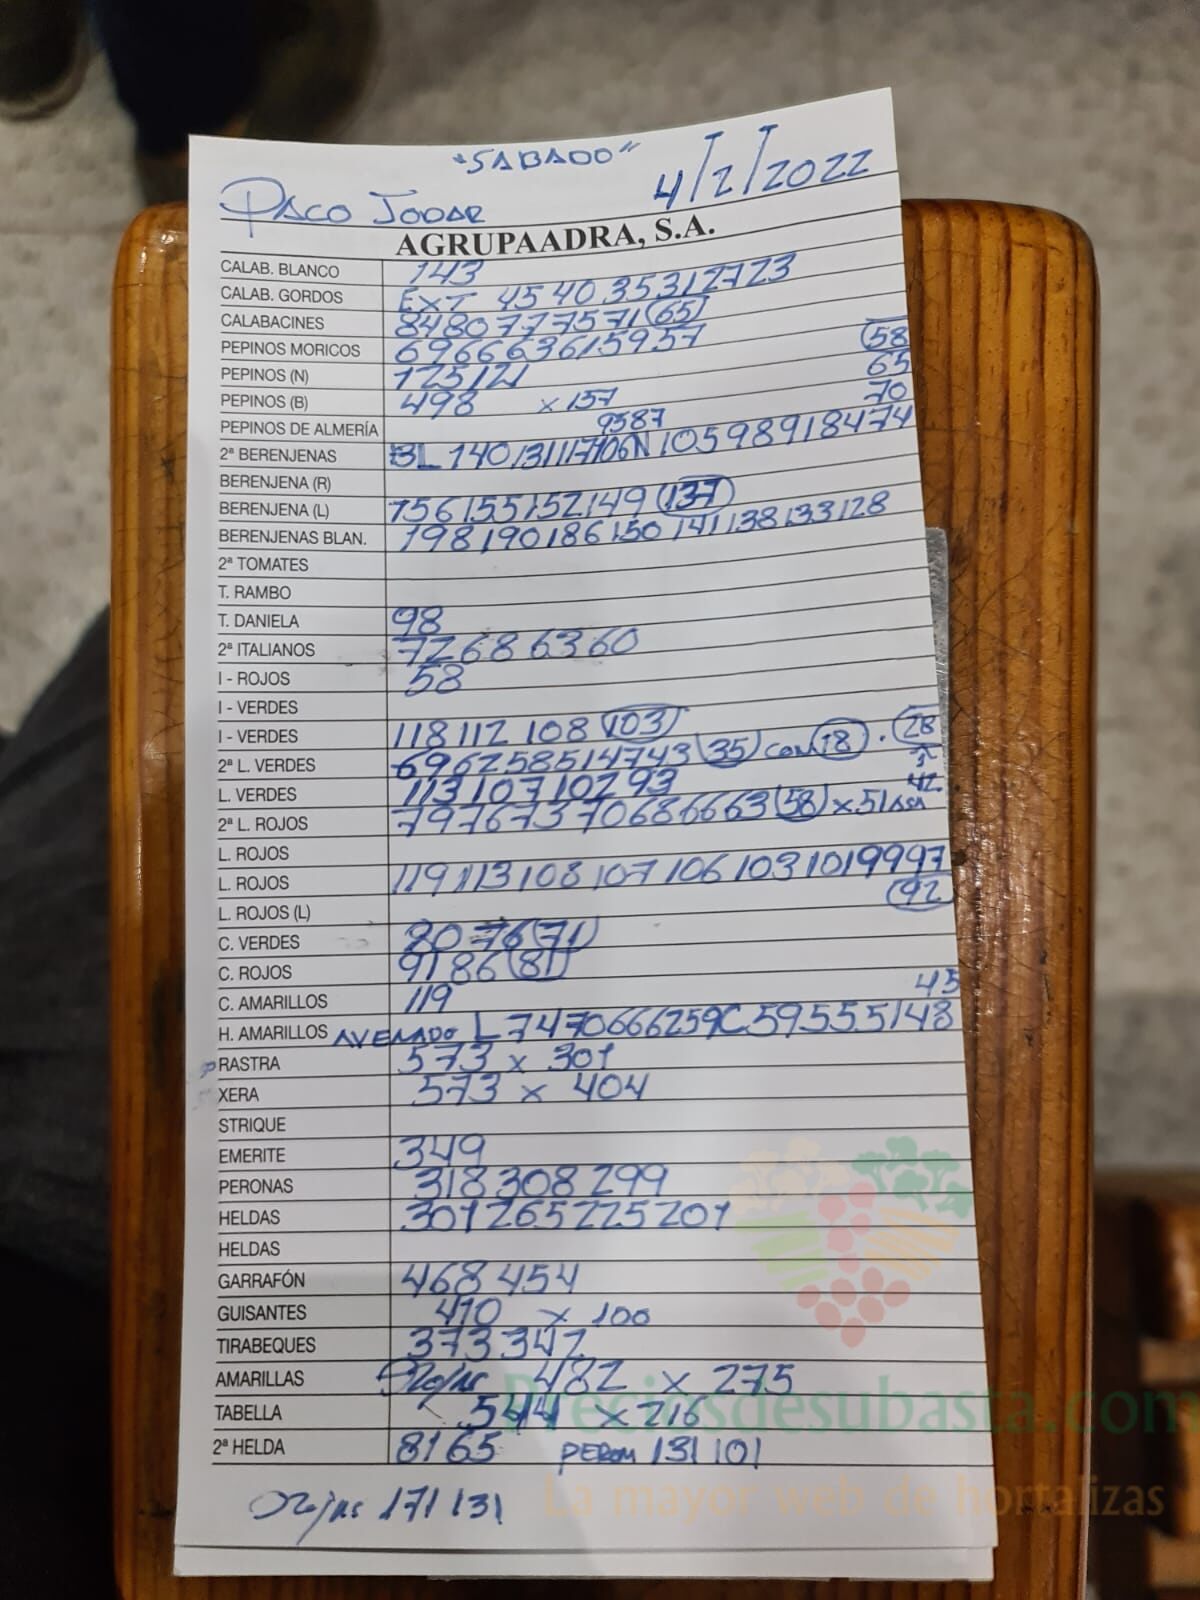 "SABADO"
PACO JODAR 4/2/2022
AGRUPAADRA, S.A.
CALAB. BLANCO 143
CALAB. GORDOS EXT 45 40 35 31 27 23
CALABACINES 84 80 77 75 71 (65)
PEPINOS MORICOS 69 66 63 61 59 57 (58)
PEPINOS (N) 125 121 65
PEPINOS (B) 498 x 157 70
PEPINOS DE ALMERÍA 95 87
2ª BERENJENAS BL 140 131 117 106 N 105 98 91 84 74
BERENJENA (R)
BERENJENA (L) 156 155 152 149 (137)
BERENJENAS BLAN. 198 190 186 150 141 138 133 128
2ª TOMATES
T. RAMBO
T. DANIELA 98
2ª ITALIANOS 72 68 63 60
I - ROJOS 58
I - VERDES
I - VERDES 118 112 108 (103)
2ª L. VERDES 69 62 58 51 47 43 (35) COM (18) . (28)
L. VERDES 113 107 102 93 42
2ª L. ROJOS 79 76 73 70 68 66 63 (58) x 51 ASA
L. ROJOS
L. ROJOS 119 113 108 107 106 103 101 99 97
L. ROJOS (L) (92)
C. VERDES 80 76 (71)
C. ROJOS 91 86 (81)
C. AMARILLOS 119 45
H. AMARILLOS L 74 70 66 62 59 C 59 55 51 48
RASTRA 573 x 301
XERA 573 x 404
STRIQUE
EMERITE 349
PERONAS 318 308 299
HELDAS 301 265 225 201
HELDAS
GARRAFÓN 468 454
GUISANTES 410 x 100
TIRABEQUES 373 342
AMARILLAS Rojas 482 x 275
TABELLA 544 x 216
2ª HELDA 81 65 PERON 131 101
Rojas 171 131
Preciosdesubasta.com
La mayor web de hortalizas